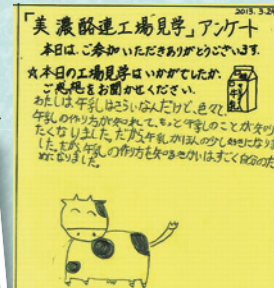 2013. 3.24
「美濃酪連工場見学」アンケート
本日は、ご参加いただきありがとうございます。
☆本日の工場見学はいかがでしたか、
ご感想をお聞かせください。
牛乳
わたしは、牛乳はきらいなんだけど、色々と、
牛乳の作り方が知れて、もっと牛乳のことが知り
たくなりました。だから、牛乳がほんの少し好きになりま
した。だが、牛乳の作り方を知るきかいはすごく自分のた
めになりました。